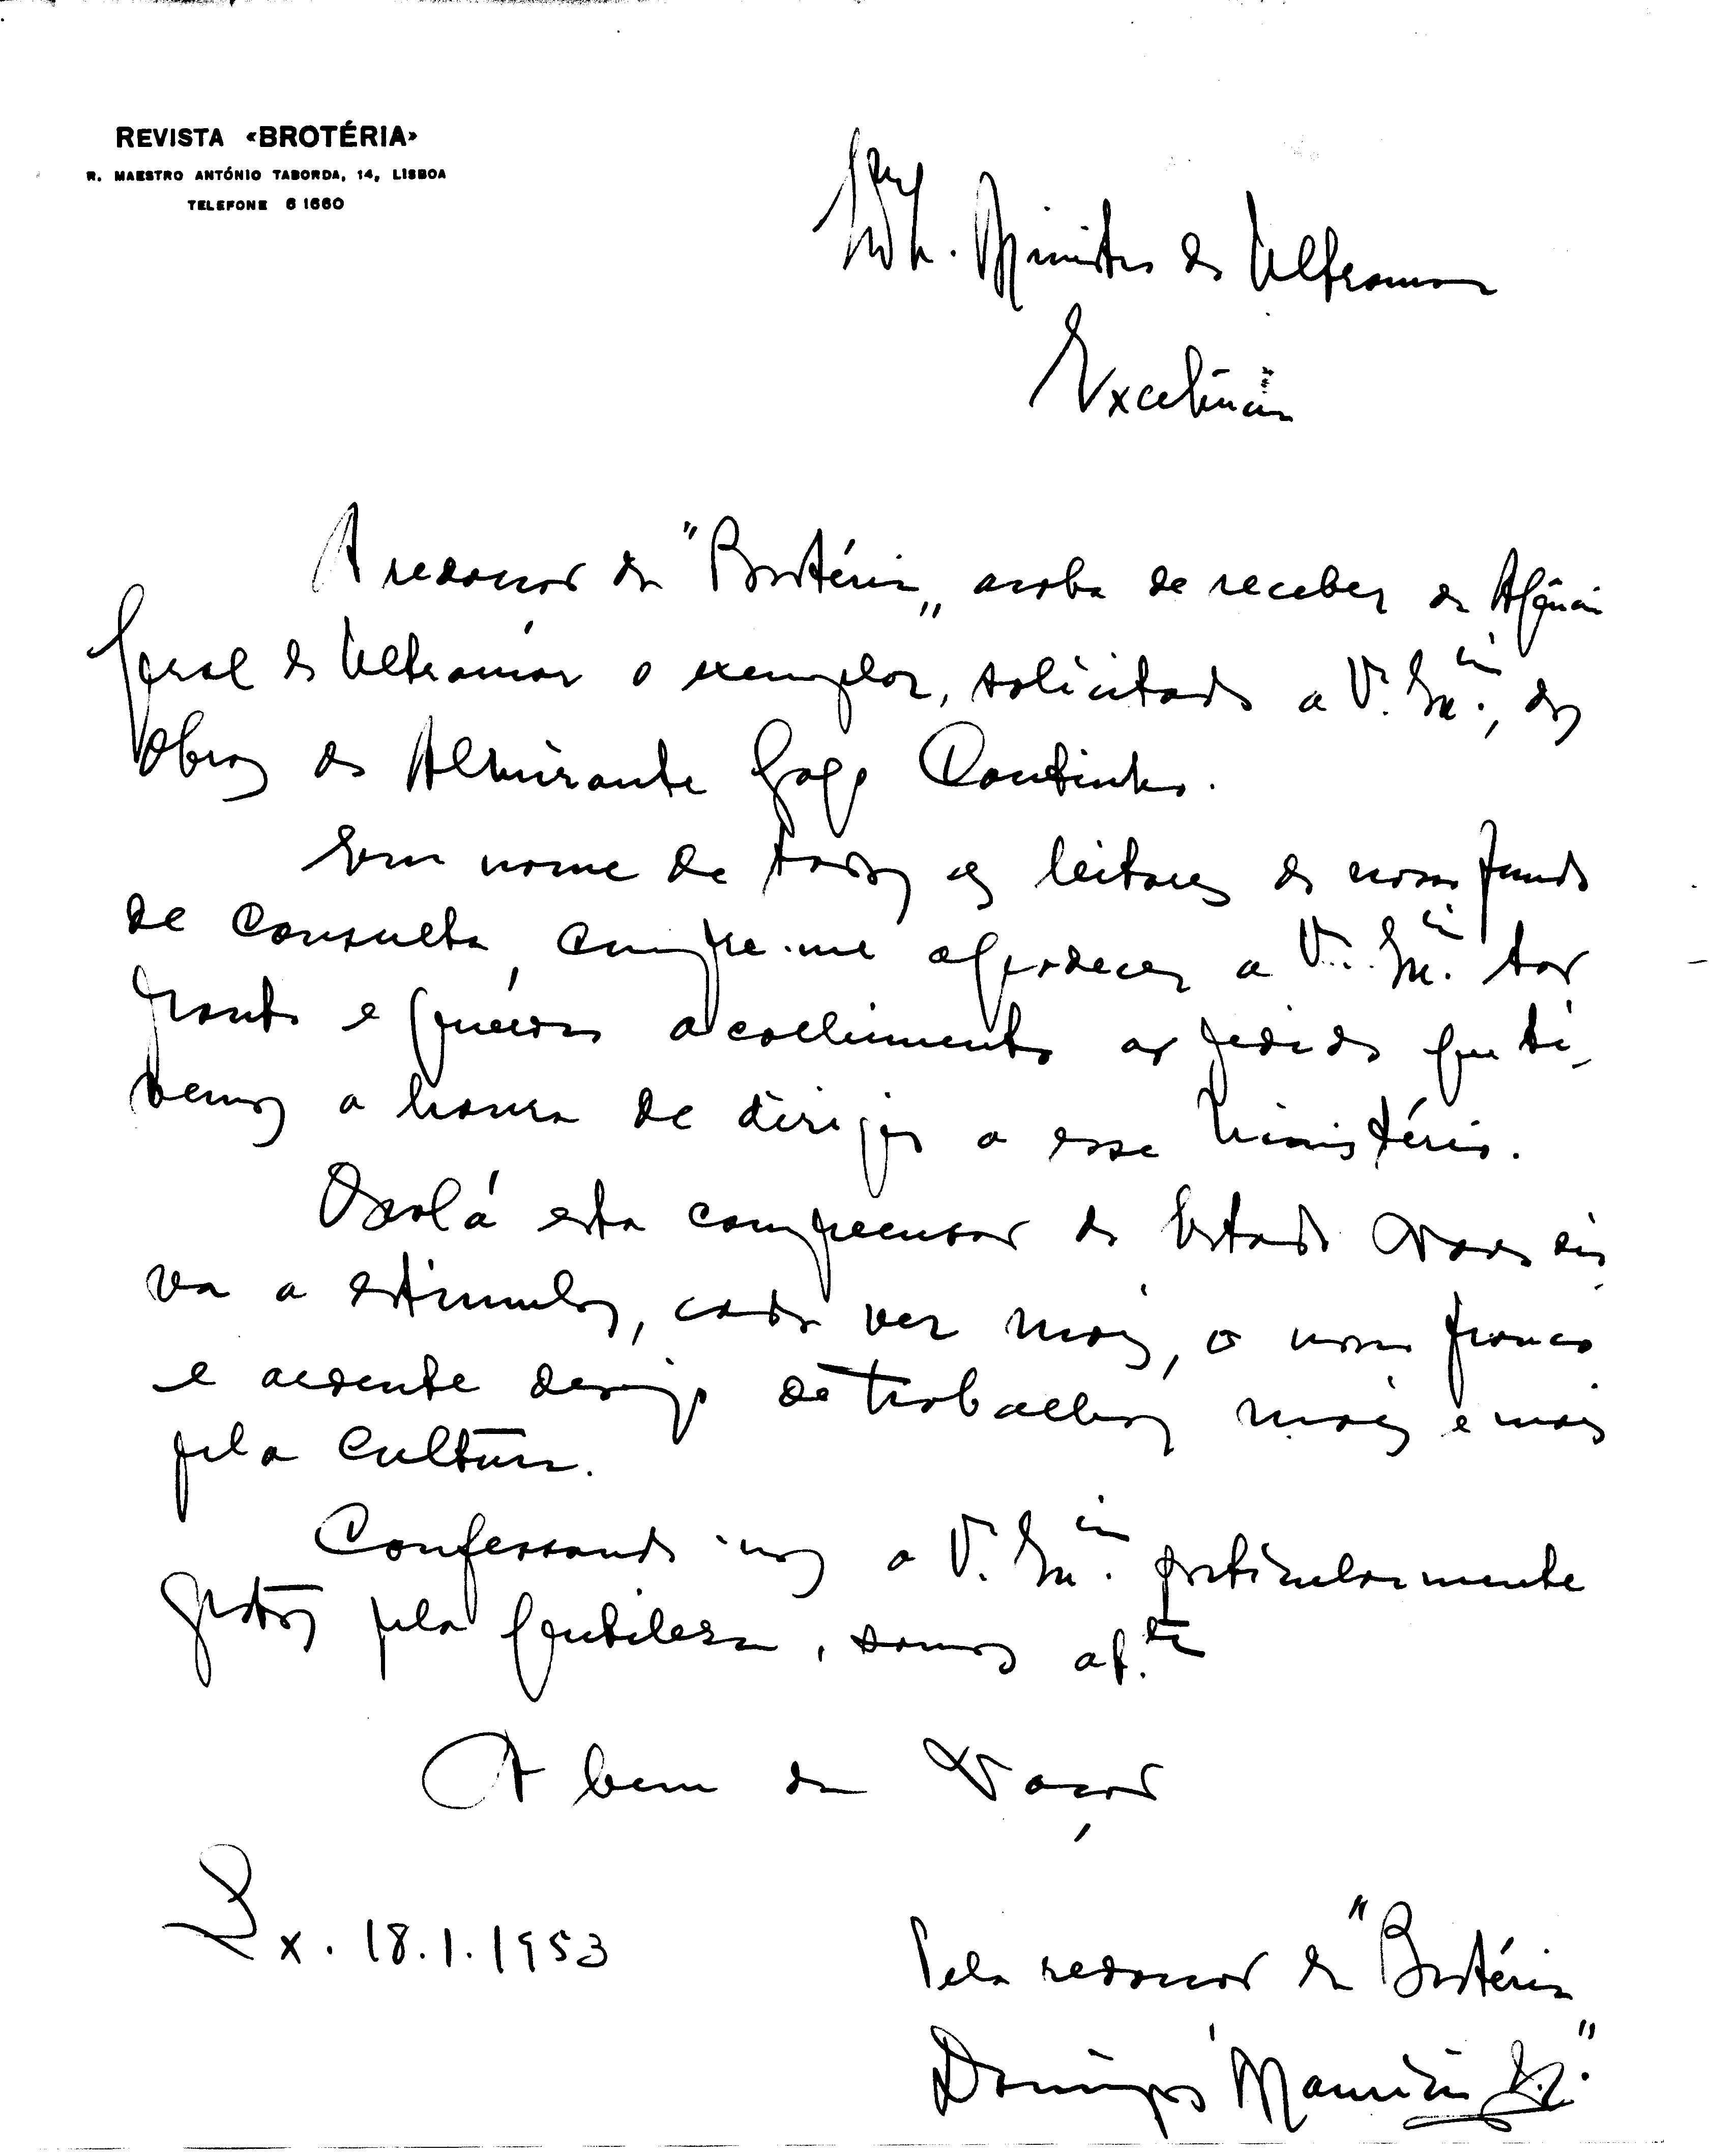 REVISTA «BROTÉRIA»
R. MAESTRO ANTÓNIO TABORDA, 14, LISBOA
TELEFONE 6 1660
Ministro do Ultramar
Excelência
A redacção da "Brotéria" acaba de receber da Agência
Geral do Ultramar o exemplar, solicitado a V. Ex.cia, das
obras do Almirante Gago Coutinho.
Em nome de todos os leitores do nosso fundo
de consulta, cumpre-me agradecer a V. Ex.cia tão
pronto e generoso acolhimento ao pedido que ti-
vemos a honra de dirigir a esse Ministério.
Oxalá esta compreensão do Estado Novo sir
va a estimular, cada vez mais, o nosso franco
e ardente desejo de trabalhar mais e mais
pela Cultura.
Confessando-nos a V. Ex.cia particularmente
gratos pela gentileza, somos at.te
A bem da Nação
Lx. 18.1.1953
Pela redacção da "Brotéria"
Domingos Maurício S.J.